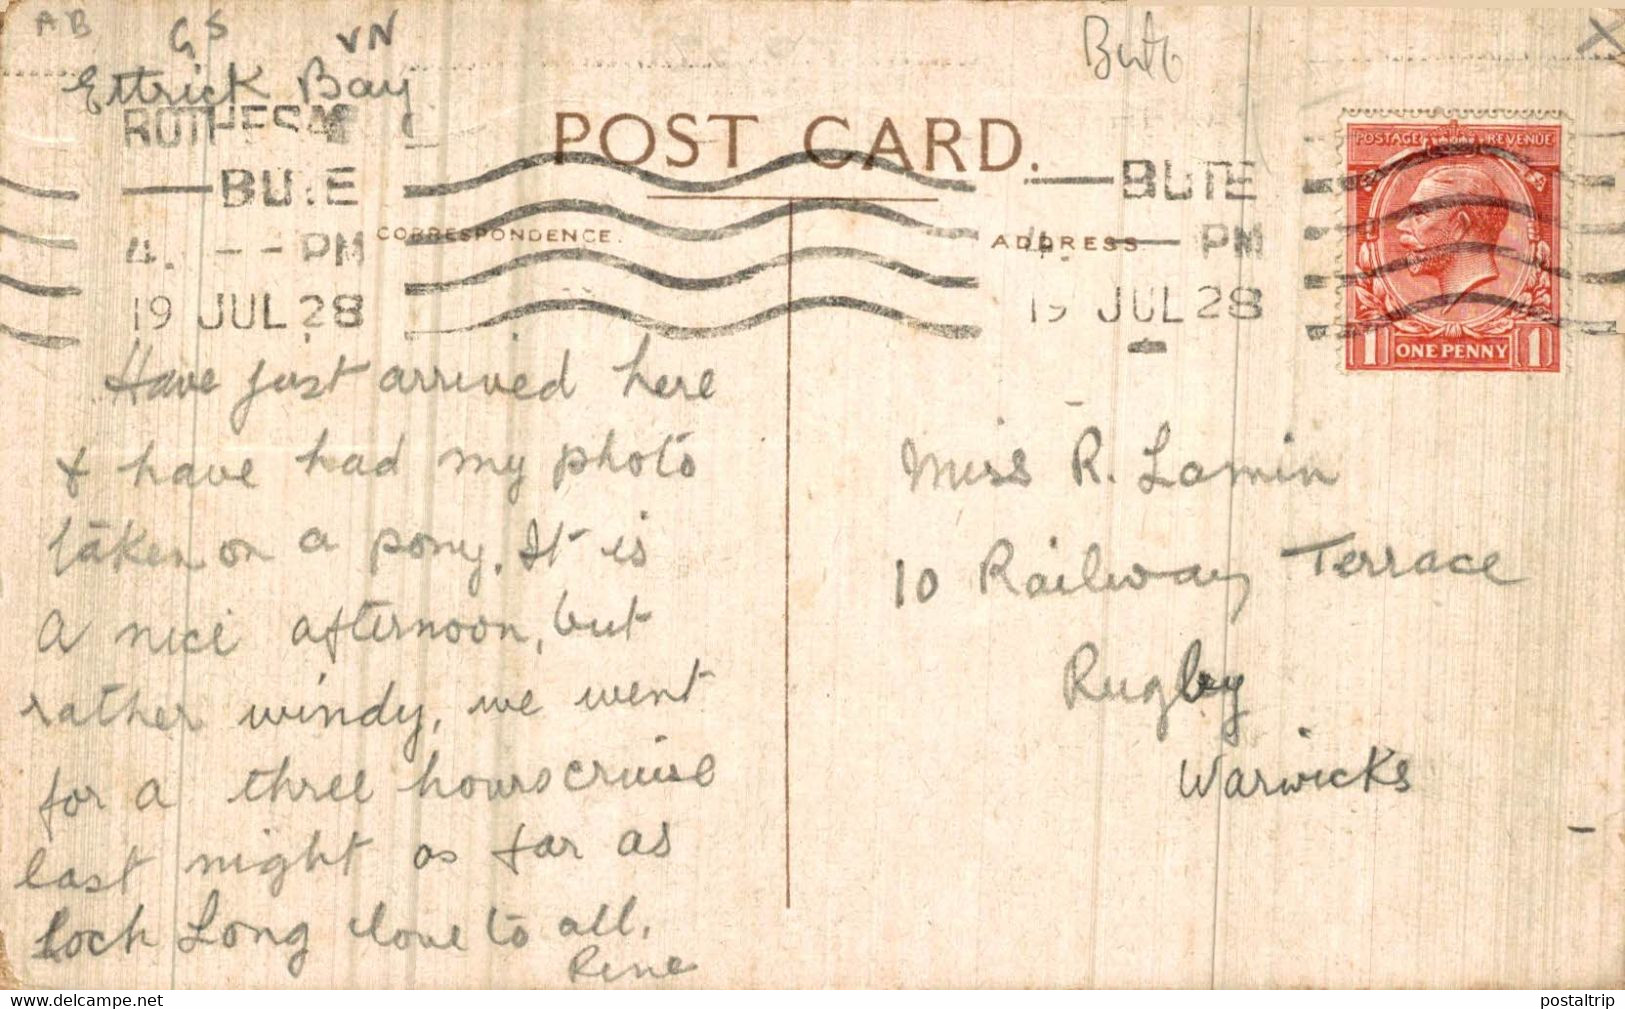 AB GS VN
Ettrick Bay
Bute
X
ROTHESAY
BUTE
4. -- PM
19 JUL 28
POST CARD.
CORRESPONDENCE.
ADDRESS
BUTE
4. PM
19 JUL 28
POSTAGE REVENUE
1 ONE PENNY 1
Have just arrived here
& have had my photo
taken on a pony. It is
a nice afternoon, but
rather windy, we went
for a three hours cruise
last night as far as
Loch Long love to all.
Rene
Miss R. Lamin
10 Railway Terrace
Rugby
Warwicks
AB 01-09
www.delcampe.net
postaltrip